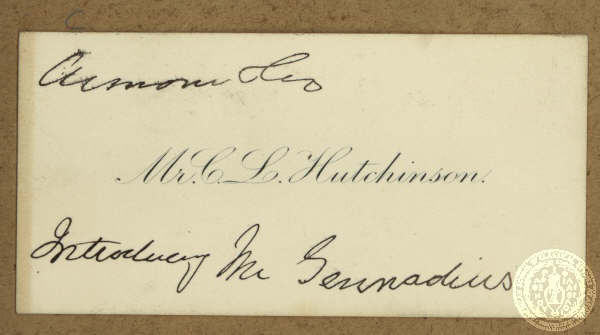 Armour
Mr. C. L. Hutchinson.
Introducing Mr Gennadius